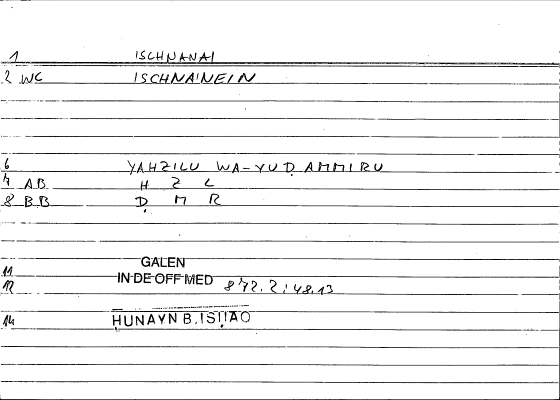 1 ISCHNANAI
2 WC ISCHNAINEIN
6 YAHZILU WA-YUḌAMMIRU
7 AB H Z L
8 BB Ḍ M R
11 GALEN
12 IN DE OFF MED 872.2:48.13
14 ḤUNAYN B.ISḤAQ